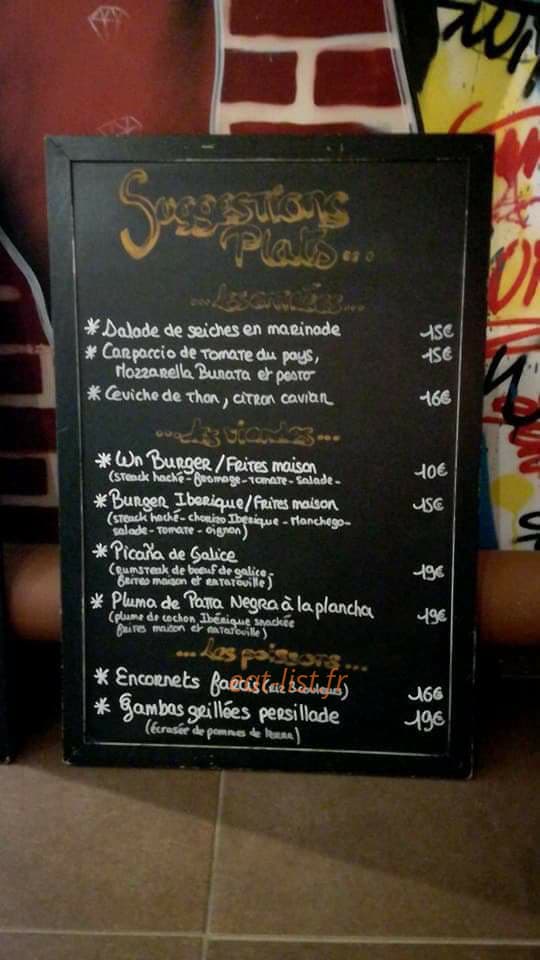 Suggestions
Plats...
...Les entrées...
* Salade de seiches en marinade 15€
* Carpaccio de Tomate du pays, 15€
Mozzarella Burata et pesto
* Ceviche de Thon, citron caviar 16€
...Les viandes...
* Wn Burger/Frites maison 10€
(steack haché - fromage - tomate - salade -
* Burger Iberique/Frites maison 15€
(steack haché - chorizo Ibérique - Manchego -
salade - tomate - oignon)
* Picaña de Galice 19€
(Rumsteak de bœuf de galice -
frites maison et ratatouille)
* Pluma de Patta Negra à la plancha 19€
(plume de cochon Ibérique snackée
frites maison et ratatouille)
...Les poissons...
* Encornets farcis (riz 3 couleurs) 16€
eat-list.fr
* Gambas grillées persillade 19€
(écrasée de pommes de terre)